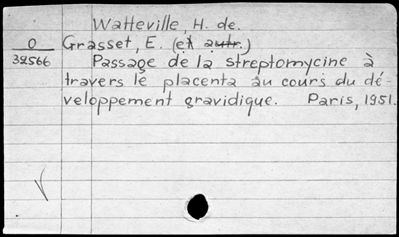 Watteville, H. de.
O Grasset, E. (et autr.)
32566 Passage de la streptomycine à
travers le placenta au cours du dé-
veloppement gravidique. Paris, 1951.